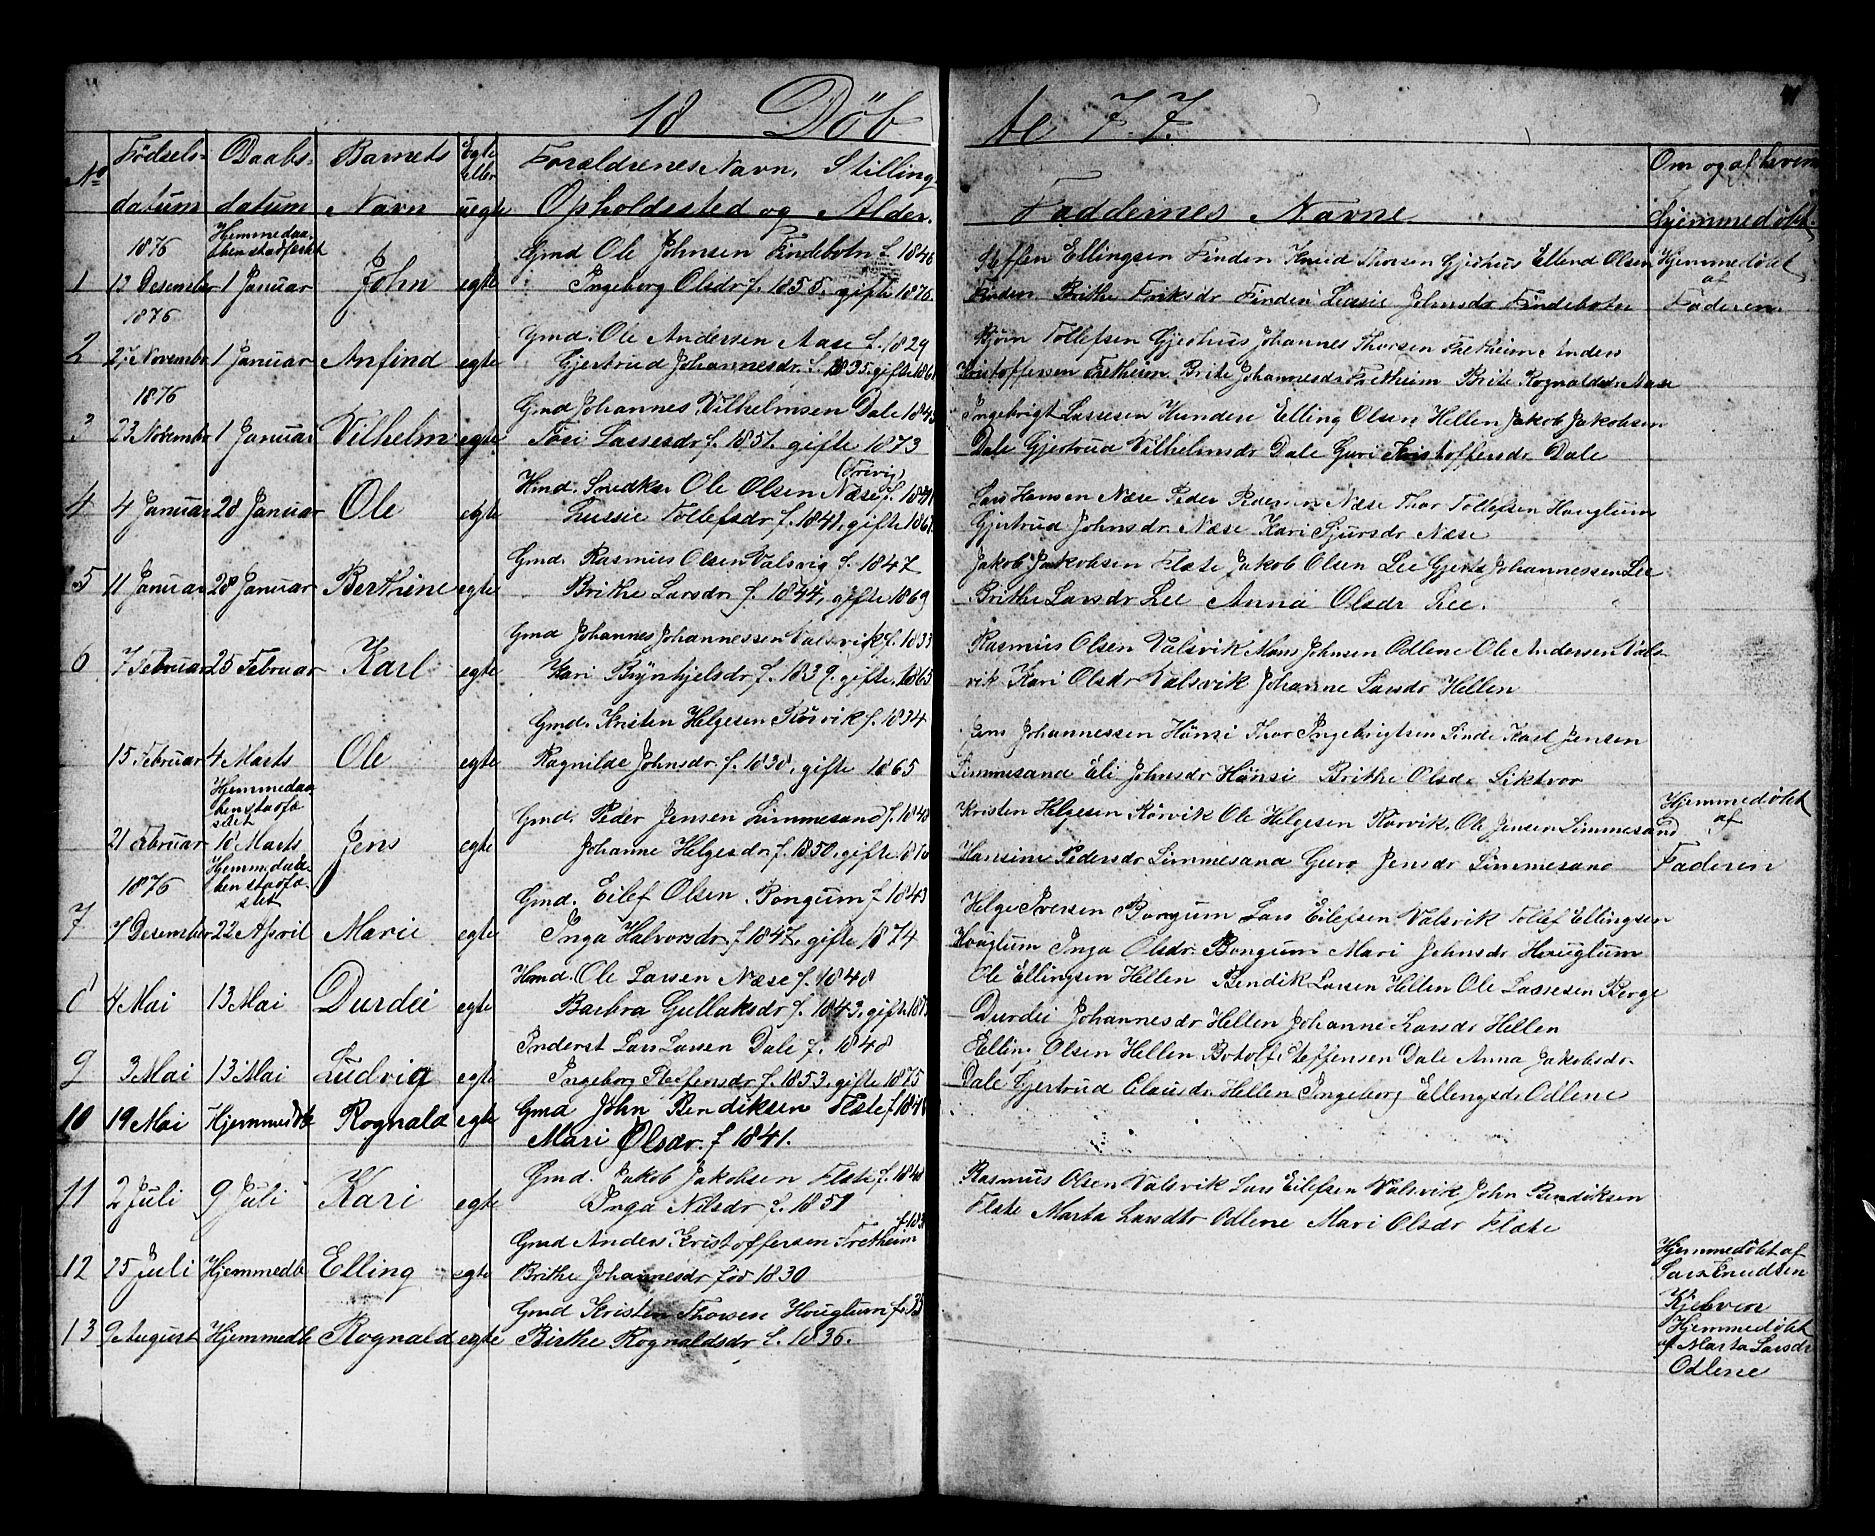 18 Döbte 77.
No Födsels-datum Daabs-datum Barnets Navn Egte eller uegte Forældrenes Navn, Stilling Opholdssted og Alder. Faddernes Navne Om og af hvem hjemmedøbt
1876 Hjemmedaaben stadfestet Gmd Ole Johnsen Findebotn f. 1846 Steffen Ellingsen Finden Knud Thorsen Gjerhus Ellend Olsen Hjemmedøbt
1 13 Desember 1 Januar John egte Ingeborg Olsdr f. 1855. gifte 1876. Finden Brithe Eriksdr Finden Lussie Johnsdr Findebotn af Faderen
1876 Gmd. Ole Andersen Aase f. 1829 Bjørn Tollefsen Gjerhus Johannes Thorsen Fretheim Anders
2 27 Novembr 1 Januar Anfind egte Gjertrud Johannesdr. f. 1835. gifte 1861 Kristoffersen Fretheim Brite Johannesdr Fretheim Brite Rognaldsdr Aase
1876 Gmd Johannes Vilhelmsen Dale 1843 Ingebrigt Lassesen Hundere Elling Olsen Hellen Jakob Jakobsen
3 23 Novembr 1 Januar Vilhelm egte Lassesdr f. 1851. gifte 1873 Dale Gjertrud Vilhelmsdr Dale Guri Kristoffersdr Dale
Hmd. Snedker Ole Olsen Næse f. Lars Hansen Næse Peder Næse Thor Tollefsen Houglum
4 4 Januar 28 Januar Ole egte Lussie Tollefsdr f. 1841, gifte Gjertrud Johnsdr Næse Kari Sjursdr Næse
Gmd. Rasmus Olsen Valsvig f. 1847 Jakob Jakobsen Flete Jakob Olsen Lee Johannessen Lee
5 11 Januar 28 Januar Berthine egte Brithe Larsdr f. 1844, gifte 1869 Brithe Larsdr Lee Anna Olsdr Lee.
Gmd Johannes Johannessen Valsvik f. 1833 Rasmus Olsen Valsvik Mons Johnsen Odlene Ole Andersen Vals-
6 7 Februar 25 Februar Karl egte Kari Brynhjelsdr f. 1839. gifte 1865 vik Kari Olsdr Valsvik Johanne Larsdr Hellen
Gmd. Kristen Helgesen Rørvik f. 1834 Jens Johannessen Hønsi Thor Ingebrigtsen Karl Jensen
15 Februar 4 Marts Ole egte Ragnilde Johnsdr f. 1838, gifte 1865 Limmesand Eli Johnsdr Hønsi Brithe Olsdr Siktvor
Hjemmedaaben stadfæstet Gmd. Peder Jensen Limmesand f. 1848 Kristen Helgesen Rørvik Ole Helgesen Rørvik, Ole Jensen Limmesand Hjemmedøbt af
21 Februar 18 Marts Jens egte Johanne Helgesdr. f. 1850, gifte Hansine Pedersdr Limmesand Guro Jensdr Limmesand Faderen
1876 Hjemmedaaben stadfæstet Gmd. Eilef Olsen Bongum f 1843 Helge Iversen Bongum Lars Eilefsen Valsvik Tollef Ellingsen
7 7 Desember 22 April Marie egte Inga Halvorsdr f 1847, gifte 1874 Houglum Inga Olsdr. Bongum Mari Johnsdr Houglum
Hmd. Ole Larsen Næse f. 1848 Ole Ellingsen Hellen Bendik Larsen Hellen Ole Lassesen Berge
8 4 Mai 13 Mai Durdei egte Barbra Gullaksdr f. 1843, gifte Durdei Johannesdr Hellen Johanne Larsdr Hellen
Inderst Lars Larsen Dale f. 1848 Elling Olsen Hellen Botolf Steffensen Dale Anna Jakobsdr
9 3 Mai 13 Mai Ludvig egte Ingeborg Steffensdr f. 1853, gifte 1875 Dale Gjertrud Clausdr Hellen Ingeborg Ellingsdr Odlene
10 19 Mai Hjemmedøbt Rognald egte Gmd John Bendiksen Flete f 1841
Mari Olsdr. f 1841.
Gmd. Jakob Jakobsen Flete f. 1848 Rasmus Olsen Valsvik Lars Eilefsen Valsvik John Bendiksen
11 2 Juli 9 Juli Kari egte Inga Nilsdr f. 1851 Flete Marta Larsdtr Odlene Mari Olsdr Flete
Gmd Anders Kristoffersen Fretheim Hjemmedøbt af
12 25 Juli Hjemmedb Elling egte Brithe Johannesdr född 1830 Lars Knudsen
Gmd Kristen Thorsen Houglum f. 35 Kjelvere
13 9 August Hjemmedb Rognald egte Birthe Rognaldsdr f. 1836. Hjemmedøbt
af Marta Larsdr
Odlene